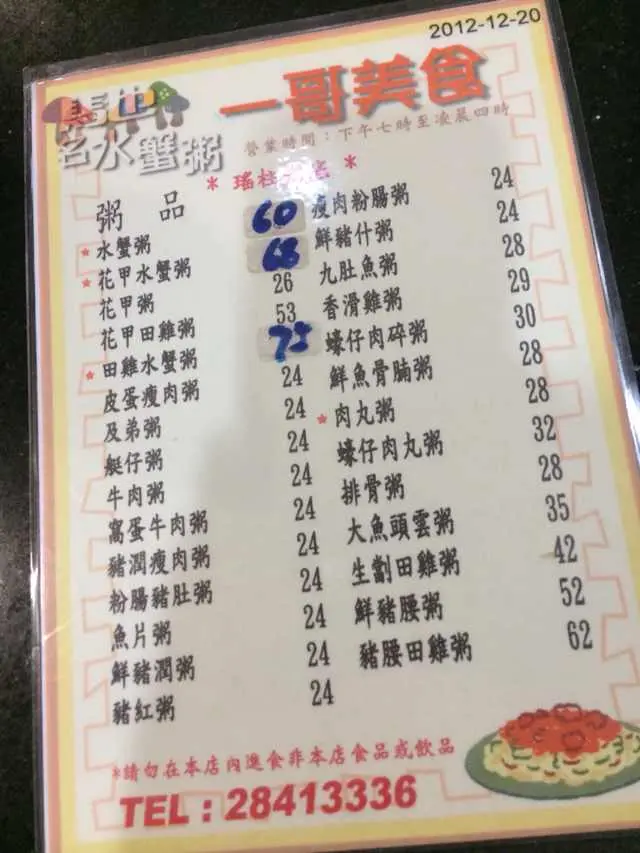 2012-12-20
一哥美食
名水蟹粥
營業時間：下午七時至凌晨四時
* 瑤柱 底 *
粥 品
* 水蟹粥 60
* 花甲水蟹粥 68
花甲粥 26
花甲田雞粥 53
* 田雞水蟹粥 75
皮蛋瘦肉粥 24
及弟粥 24
艇仔粥 24
牛肉粥 24
窩蛋牛肉粥 24
豬潤瘦肉粥 24
粉腸豬肚粥 24
魚片粥 24
鮮豬潤粥 24
豬紅粥 24
瘦肉粉腸粥 24
鮮豬什粥 24
九肚魚粥 28
香滑雞粥 29
蠔仔肉碎粥 30
鮮魚骨腩粥 28
* 肉丸粥 28
蠔仔肉丸粥 32
排骨粥 28
大魚頭雲粥 35
生劏田雞粥 42
鮮豬腰粥 52
豬腰田雞粥 62
*請勿在本店內進食非本店食品或飲品
TEL : 28413336